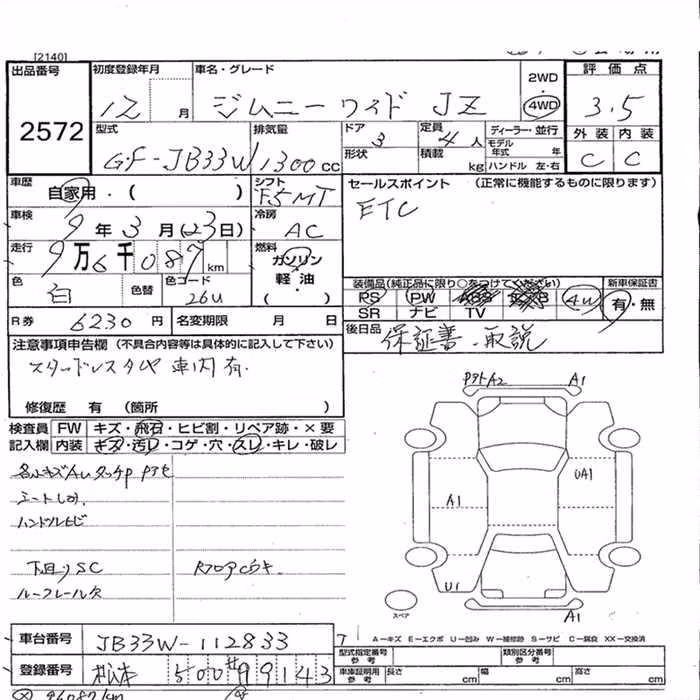 [2140]
出品番号 2572
初度登録年月 12 月
車名・グレード ジムニーワイド JZ
2WD 4WD
評価点 3.5
型式 GF-JB33W
排気量 1300 cc
ドア 3
形状
定員 4 人
積載 kg
ディーラー・並行
モデル年式 年
ハンドル 左・右
外装 内装
C C
車歴 自家用・( )
シフト F5MT
セールスポイント (正常に機能するものに限ります)
ETC
車検 9年3月(23日)
冷房 AC
走行 9万6千087km
燃料 ガソリン 軽・油 ( )
色 白 色替 色コード 26U
装備品(純正品に限り○をつけてください) 新車保証書
PS PW ABS 4W 有・無
SR ナビ TV
R券 6230円 名変期限 月 日
後日品 保証書・取説
注意事項申告欄 (不具合内容等は具体的に記入して下さい)
スタッドレスタイヤ 車内有
修復歴 有 (箇所 )
検査員 FW キズ・飛石・ヒビ割・リペア跡・×要
記入欄 内装 キズ・汚レ・コゲ・穴・スレ・キレ・破レ
シートしみ
下回りSC
ルーフレール欠
A2 A1
A1 UA1
U1
A1
スペア
A―キズ E―エクボ U―凹み W―補修跡 S―サビ C―腐食 XX―交換済
車台番号 JB33W-112833
登録番号 松本 500 99143
型式指定番号 参考 類別区分番号 参考
車庫証明用 参考 長さ cm 幅 cm 高さ cm
96087km